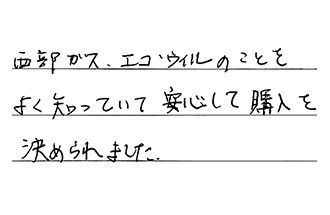 西部ガス、エコ・ウィルのことを
よく知っていて安心して購入を
決められました。